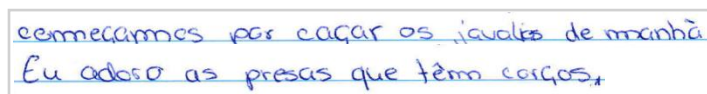 começamos por caçar os javalis de manhã
Eu adoro as presas que têm corços,